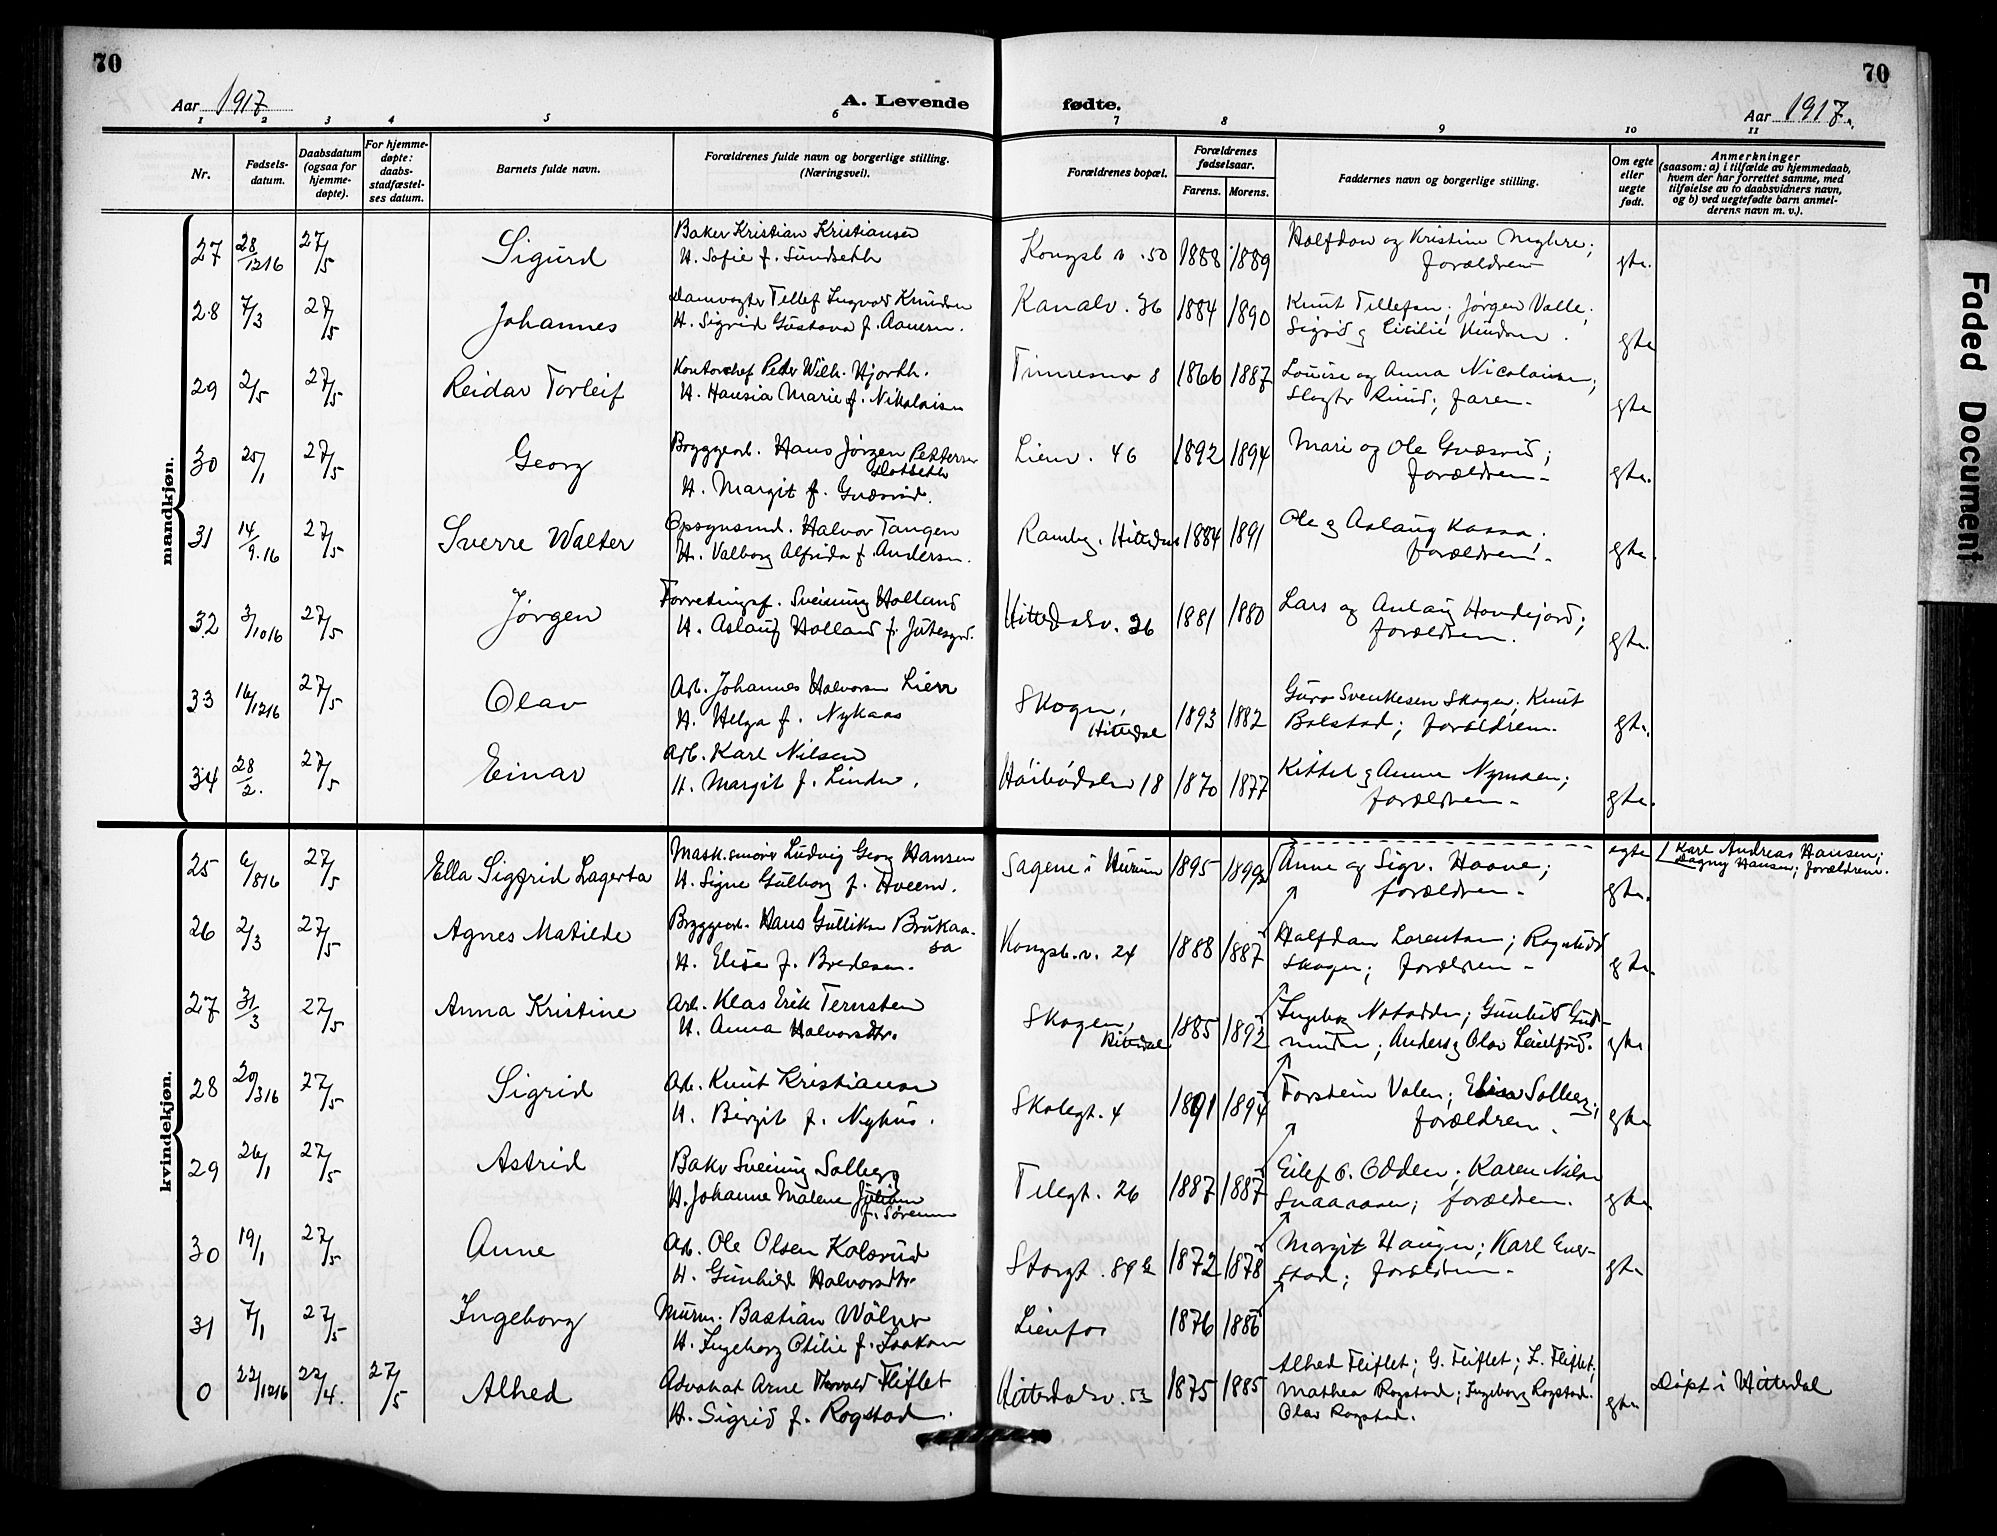 70
70
Aar 1917
A. Levende fødte.
Aar 1917.
1 2 3 4 5 6 7 8 9 10 11
Nr.
Fødsels-
datum.
Daabsdatum
(ogsaa for
hjemme-
døpte).
For hjemme-
døpte:
daabs-
stadfæstel-
ses datum.
Barnets fulde navn.
Forældrenes fulde navn og borgerlige stilling.
(Næringsvei).
Forældrenes bopæl.
Forældrenes
fødselsaar.
Farens. Morens.
Faddernes navn og borgerlige stilling.
Om egte
eller
uegte
født.
Anmerkninger
(saasom: a) i tilfælde av hjemmedaab,
hvem der har forrettet samme, med
tilføielse av to daabsvidners navn,
og b) ved uegtefødte barn anmel-
derens navn m. v.).
Faded Document
mandkjøn.
27 28/12 16 27/5 Sigurd Baker Kristian Kristiansen Kongsb.v. 50 1888 1889 Halfdan og Kristine Myhre; gte.
H. Sofie f. Sundseth forældrene
28 7/3 27/5 Johannes Damvogter Tellef Ingvald Knudsen Kanalv. 36 1884 1890 Knut Tellefsen; Jørgen Valle; gte
H. Sigrid Gustava f. Sigrid og Cicilie Knudsen.
29 2/5 27/5 Reidar Torleif Kontorchef Peter Wilh. Hjorth. 8 1866 1887 Louise og Anna Nicolaisen; gte
H. Hansia Marie f. Nikolaisen Slagter Ruud; faren.
30 25/1 27/5 Georg Bryggearb. Hans Jørgen Pettersen Lienv. 46 1892 1894 Mari og Ole Gvæsrud; gte.
H. Margit f. Gvæsrud. forældrene
31 14/9.16 27/5 Sverre Walter Opsynsmd. Halvor Tangen Hitterdal 1884 1891 Ole og Aslaug Kaasa; gte.
H. Valborg Alfrida f. Andersen. forældrene.
32 3/10 16 27/5 Jørgen Forretningsf. Sveinung Holland Hitterdalsv. 36 1881 1880 Lars og Hovdejord; gte.
H. Aslaug Holland f. forældrene.
33 16/12 16 27/5 Olav Arb. Johannes Halvorsen Lien Skogen, 1893 1882 Guro Svenkesen Skogen; Knut gte.
H. Helga f. Nykaas Hitterdal Bolstad; forældrene.
34 28/2. 27/5 Einar Arb. Karl Nilsen 18 1870 1877 Kittel og Anne Nymoen; gte.
H. Margit f. Linden. forældrene
kvindekjøn.
25 6/8 16 27/5 Ella Sigfrid Lagerta Mask.smører Ludvig Georg Hansen Sagene i Hurum 1895 Anne og Sigv. Haave; egte Karl Andreas Hansen;
H. Signe Gulborg f. Hveem. forældrene gte. Dagny Hansen; forældrene.
26 2/3 27/5 Agnes Matilde Bryggearb. Hans Gulliksen Brukaa- Kongsb.v. 24 1888 1887 Halfdan Lorentsen; Ragnhild gte.
sa
H. Elise f. Bredesen. Skogen; forældrene
27 31/3 27/5 Anna Kristine Arb. Klas Erik Ternsten Skogen, 1885 1892 Ingeborg Notodden; Gunhild Gud-
H. Anna Halvorsdtr. Hitterdal mundsen; Anders og Olav gte
28 20/3 16 27/5 Sigrid Arb. Knut Kristiansen Skolegt. 4 1891 1894 Torstein Valen; Elise Solberg; gte
H. Birgit f. Nyhus. forældrene.
29 26/1 27/5 Astrid Baker Sveinung Solberg Telegt. 26 1887 1887 Eilef O. Odden; Karen Nilsen
H. Johanne Malene Juliane forældrene. gte.
f. Sørensen
30 19/1 27/5 Anne Arb. Ole Olsen Kolsrud Storgt. 89 1872 1878 Margit Haugen; Karl Ever- gte
H. Gunhild Halvorsdtr. stad; forældrene
31 7/1 27/5 Ingeborg Murm. Bastian Wølner Lienfos 1876 1886
H. Ingeborg Otilie f. Isaksen
0 22/12 16 22/4. 27/5 Alhed Advokat Arne Torvald Fliflet Hitterdalsv. 53 1875 1885 Alhed Fliflet; G. Fliflet; L. Fliflet; gte Døpt i Hitterdal
H. Sigrid f. Rogstad. Mathea Rogstad; Ingeborg Rogstad.
Olav Rogstad.